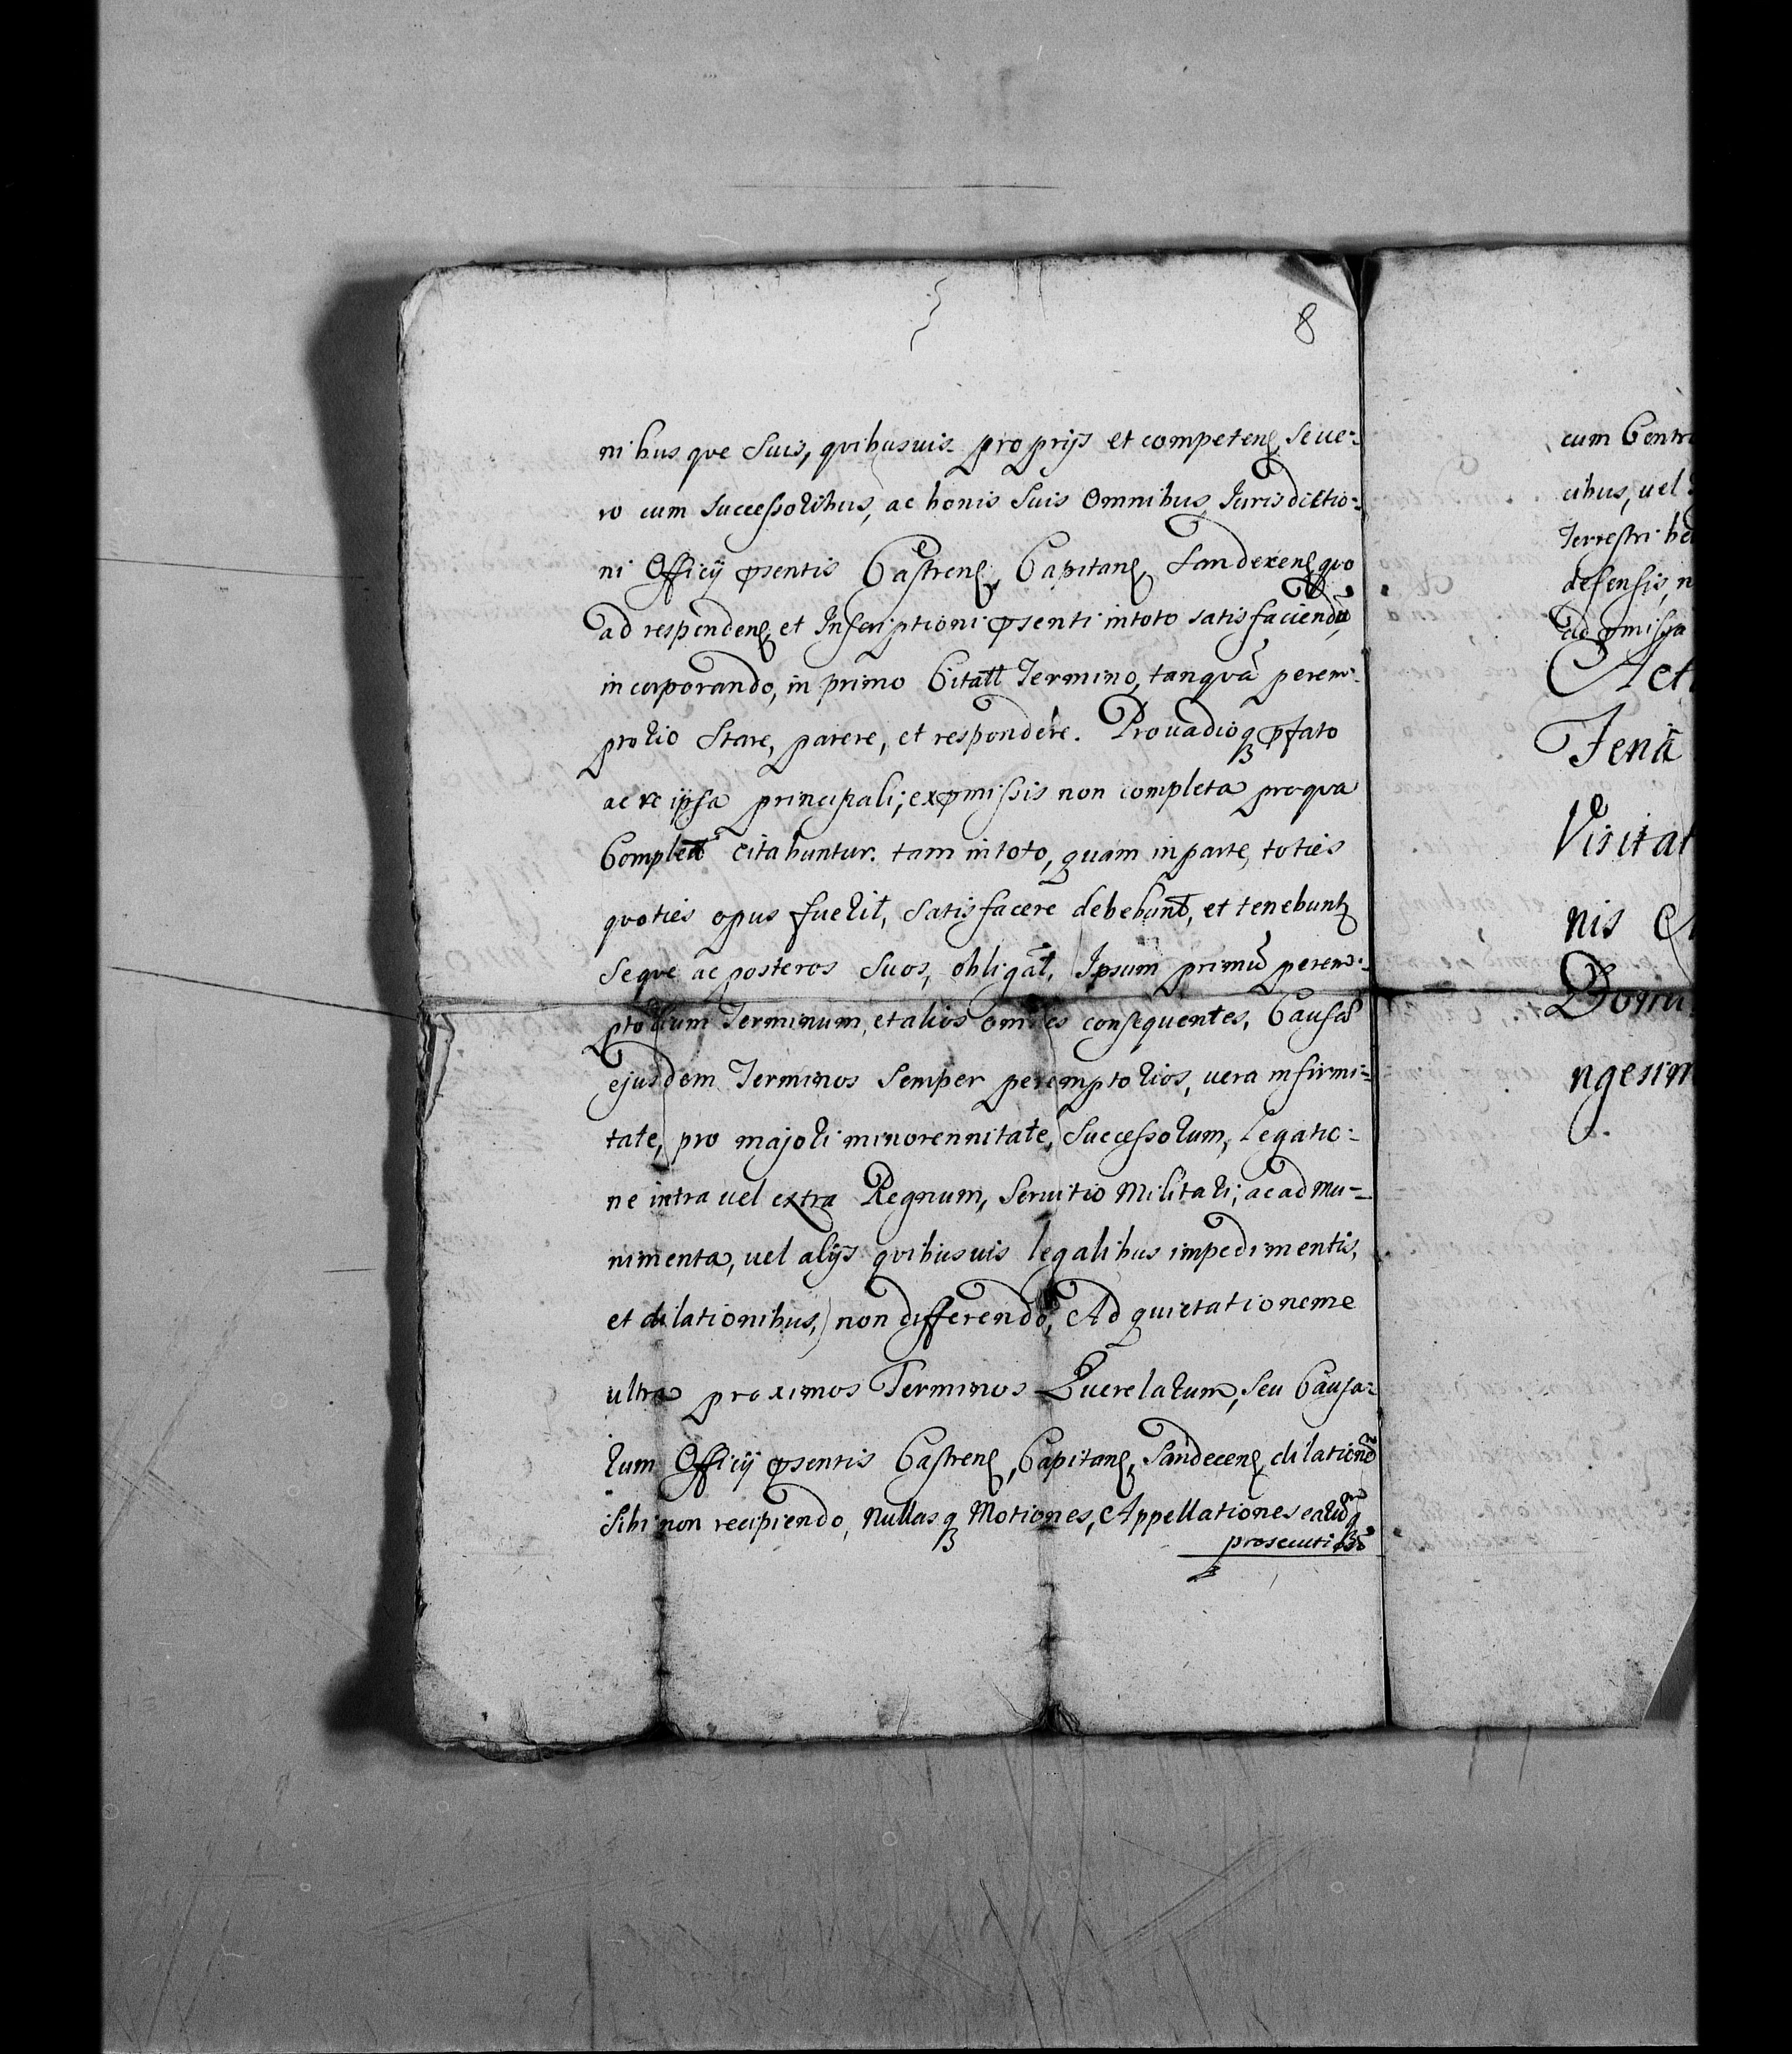 8
nibus que suis, quibusuis proprijs et competen, se ue:
ro cum successoribus, ac bonis suis omnibus, Jurisdictio:
ni Officij psentis Castren, Capitan, Sandecen, quo
ad responden, et Inscriptioni psenti in toto satisfaciendũ,
incorporando, in primo Citatt Termino, tanquã perem:
ptorio stare, parere, et respondere. Pro uadioq pfato
ac re ipsa principali, ex pmissis non completa pro qua
Complett citabuntur. tam in toto, quam in parte, toties
quoties opus fuerit, satisfacere debebunt, et tenebunt
seque ac posteros suos, obligãt, Ipsum primũ perem:
ptorium Terminum, et alios omnes consequentes, Causã
ejusdem Terminos semper peremptorios, uera infirmi=
tate, pro majori minorennitate, Successorum, legatio=
ne intra uel extra Regnum, seruitio Militari, ac ad mu=
nimenta, uel alijs quibusuis legalibus impedimentis,
et dilationibus, non differendo, Ad quietationeme
ultra proximos Terminos Querelarum, seu Causa=
rum Officij psentis Castren, Capitan, Sandecen, dilation
sibi non recipiendo, Nullasq Motiones, Appellationes earũq
prosecuti
cum Contr
cibus, uel
Terrestri
defensis, n
ad pmissa
Act
Feriã
Visitat
nis
Domi
ngesim